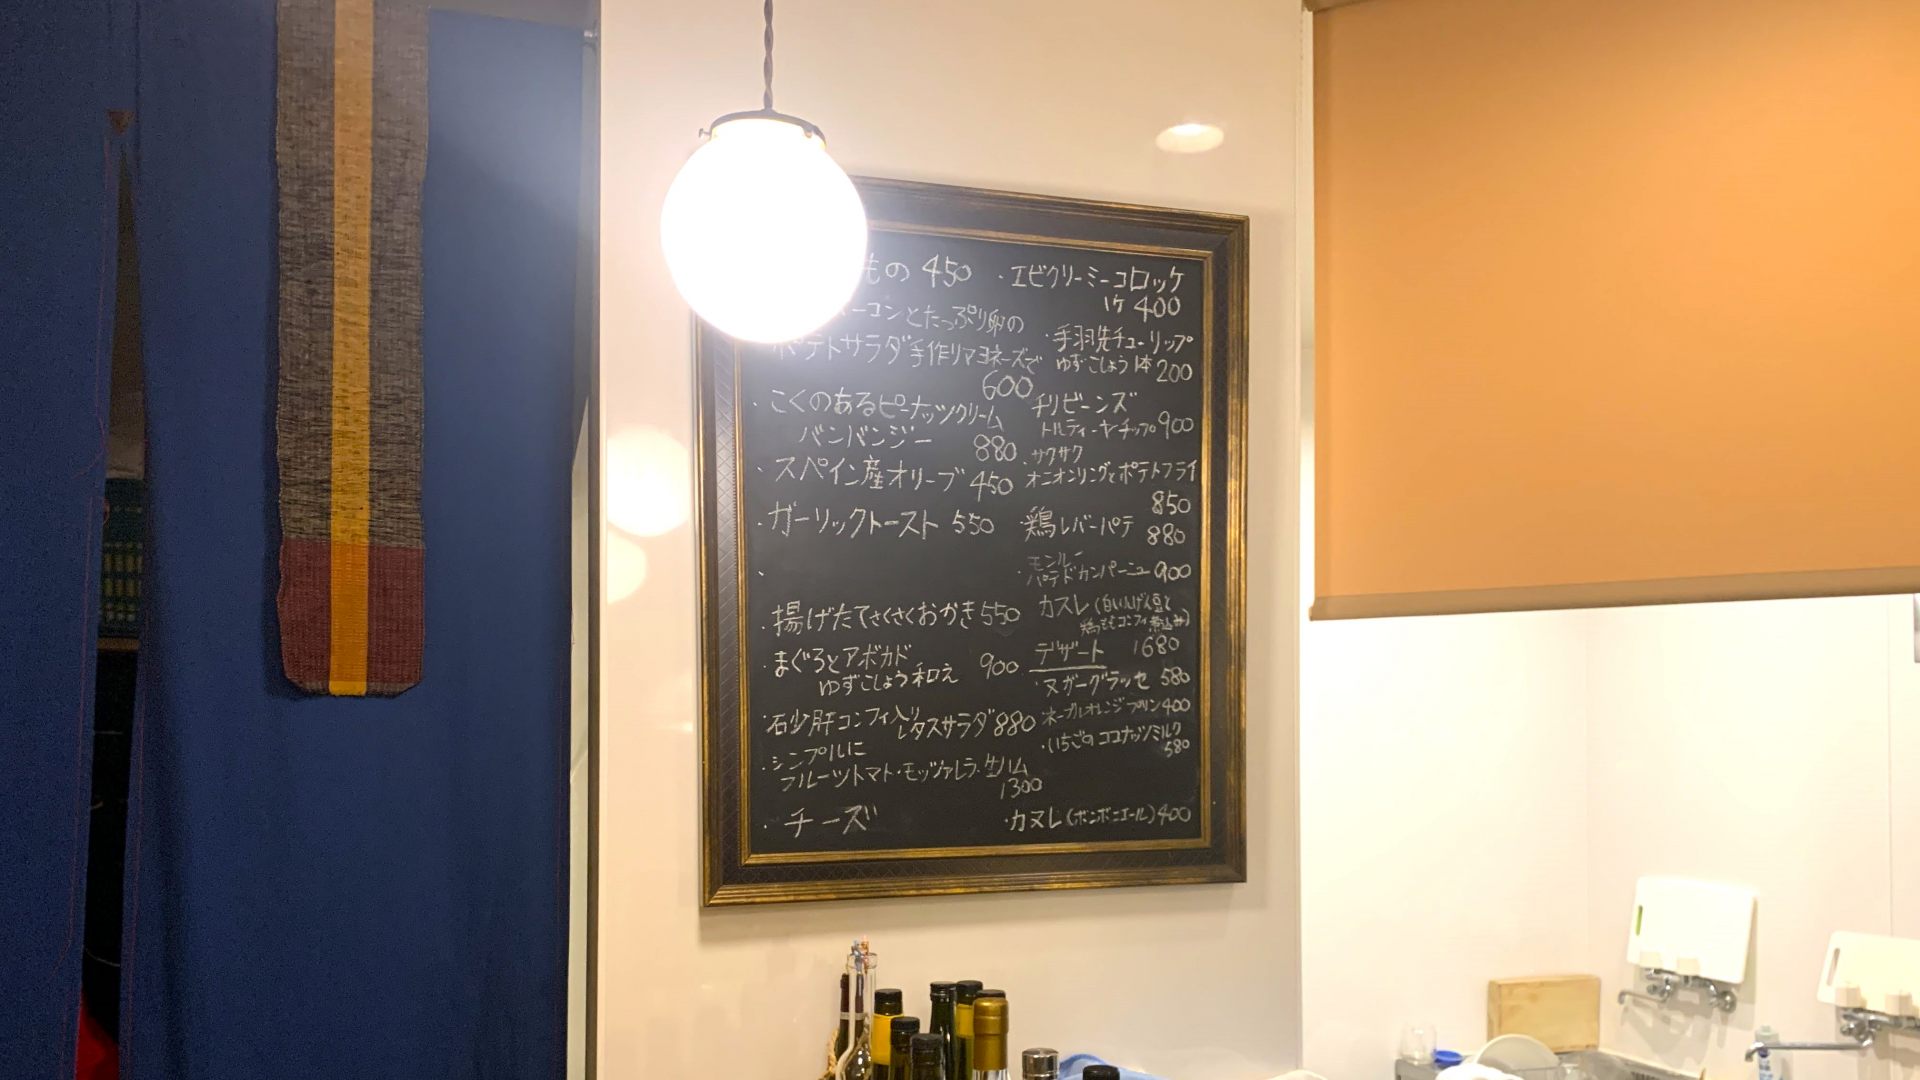 もの 450
ーコンとたっぷり卵の
ポテトサラダ手作りマヨネーズで
600
・こくのあるピーナッツクリーム
バンバンジー 880
・スペイン産オリーブ 450
・ガーリックトースト 550
・揚げたてさくさくおかき 550
・まぐろとアボカド
ゆずこしょう和え 900
・砂肝コンフィ入り
レタスサラダ 880
・シンプルに
フルーツトマト・モッツァレラ・生ハム
1300
・チーズ
・エビクリーミーコロッケ
1ケ 400
・手羽先チューリップ
ゆずこしょう 1本 200
チリビーンズ
トルティーヤチップ 900
・サクサク
オニオンリングとポテトフライ
850
・鶏レバーパテ 880
・モンルー
パテドカンパーニュ 900
カスレ(白いんげん豆と
鶏ももコンフィ煮込み)
1680
デザート
・ヌガーグラッセ 580
ネーブルオレンジプリン 400
・いちごのココナッツミルク
580
・カヌレ(ボンボニエール) 400